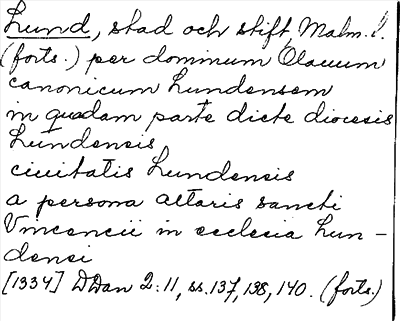 Lund, stad och stift, Malm. l.
(forts.) per dominum Olauum
canonicum Lundensem
in quadam parte dicte diocesis
Lundensis
ciuitatis Lundensis
a persona altaris sancti
Vincencii in ecclesia Lun-
densi
[1334] DDan 2:11, ss. 137, 138, 140. (forts.)